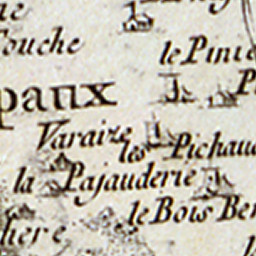 Touche
le Pinie
paux
Varaize
les Pichaud
la Pajauderie
le Bois Ber
liere